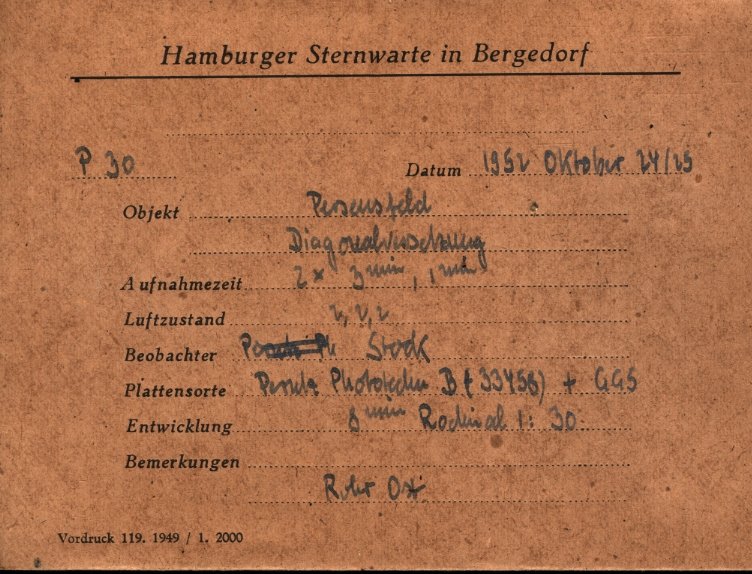 Hamburger Sternwarte in Bergedorf
P 30 Datum 1952 Oktober 24/25
Objekt Perseusfeld
Diagonalversetzung
Aufnahmezeit 2 × 3 min, 1 min
Luftzustand 2, 2, 2
Beobachter Stock
Plattensorte Perutz Phototechn B (33458) + GG5
Entwicklung 8 min Rodinal 1: 30
Bemerkungen
Rohr Ost
Vordruck 119. 1949 / 1. 2000